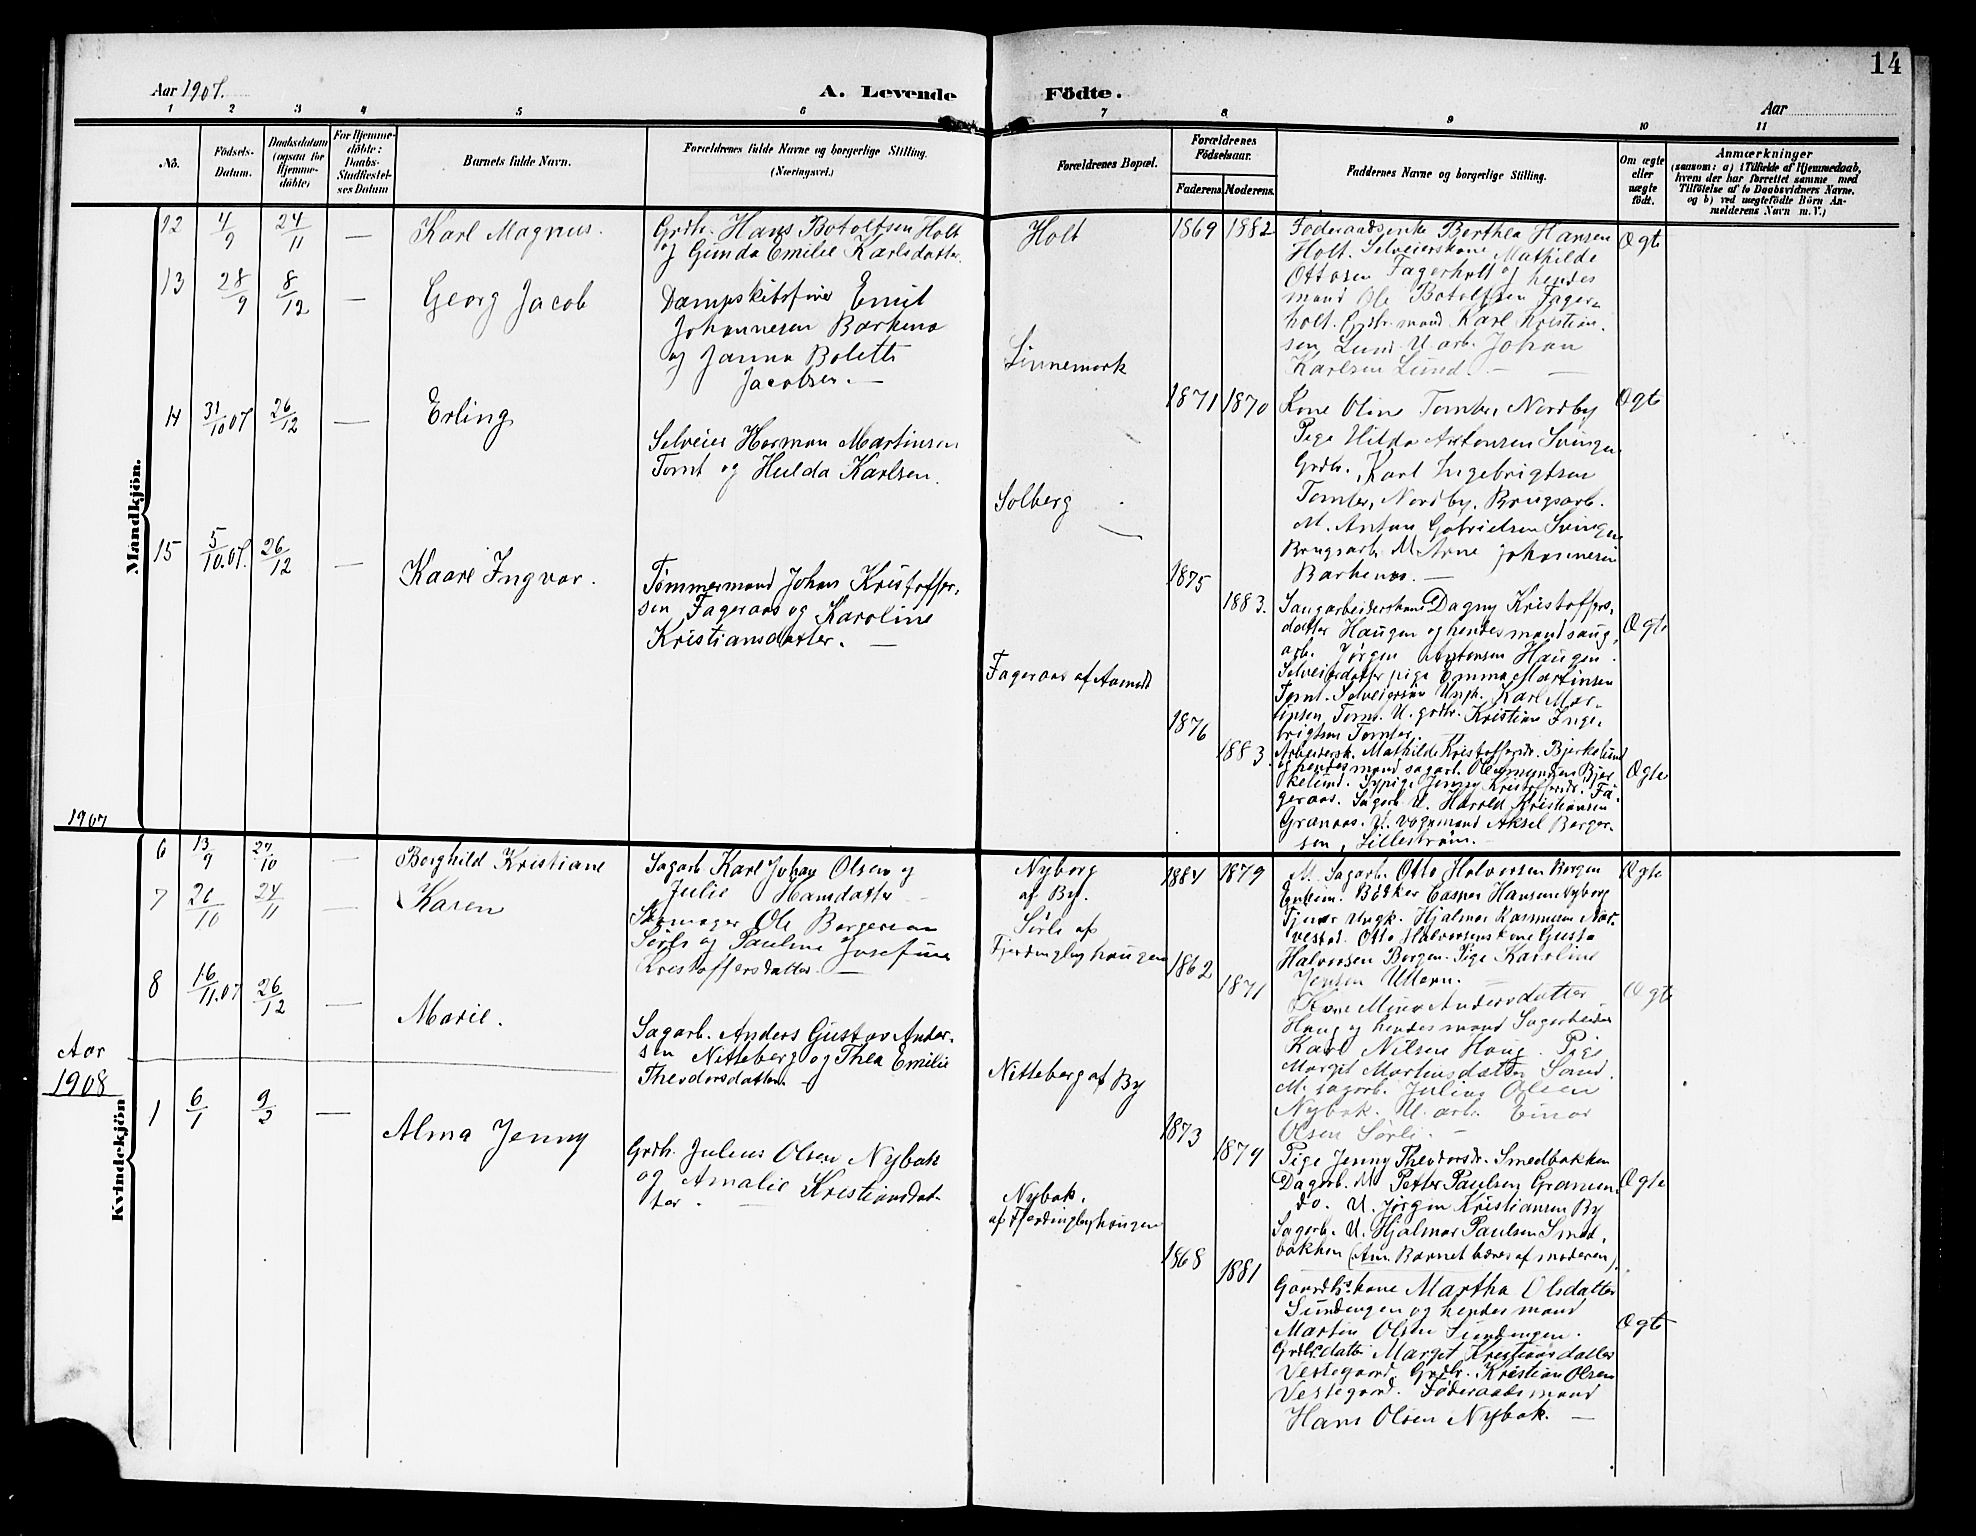 14
Aar 1907.
A. Levende Födte.
Aar
1 2 3 4 5 6 7 8 9 10 11
No.
Födsels-Datum.
Daabsdatum (ogsaa for Hjemmedöbte)
For Hjemmedöbte: Daabs-Stadfæstelses Datum
Barnets fulde Navn.
Forældrenes fulde Navne og borgerlige Stilling.
(Næringsvei.)
Forældrenes Bopæl.
Forældrenes Fødselsaar.
Faderens. Moderens.
Faddernes Navne og borgerlige Stilling.
Om ægte eller uægte født.
Anmærkninger
(saasom: a) i Tilfælde af Hjemmedaab, hvem der har forrettet samme med Tilföielse af to Daabsvidners Navne, og b) ved uægtefödte Börn Anmelderens Navn m. V.)
Mandkjön.
12 4/9 24/11 — Karl Magnus.
Grdbr. Hans Botolfsen Holt
og Gunda Emilie Karlsdatter.
Holt
1869 1882
Føderaadsenke Berthea Hansen
Holt. Selveierskone Mathilde
Ottosen Fagerholt og hendes
mand Ole Botolfsen Fager-
holt. Grdbr. mand Karl Kristian-
sen Lund. U. arb. Johan
Karlsen Lund. —
Ægte
13 28/9 8/12 — Georg Jacob
Emil
Johannesen Barkenæs
og Janna Bolette
Jacobsen. —
Linnemark
1871 1870
Kone Oline Tomter, Nordby
Pige Hilda Antonsen Svingen
Grdbr. Karl Ingebrigtsen
Tomter, Nordby, Brugsarb.
M. Anton Gabrielsen Svingen
Brugsarb. M. Arne Johannesen
Barkenæs. —
Ægte
14 31/10 07 26/12 — Erling
Selveier Herman Martinsen
Tomt og Hulda Karlsen.
Solberg
1875 1883.
Saugarbeiderskone Dagny Kristoffers-
datter Haugen og hendes mand saug-
arb. Jørgen Antonsen Haugen.
Selveierdatter pige Emma Martinsen
Tomt. Selveiersøn Ungk. Karl Mar-
tinsen, Tomt. U. grdbr. Kristian Inge-
brigtsen Tomter.
Ægte
15 5/10.07. 26/12 — Kaare Ingvar.
Tømmermand Johan Kristoffer-
sen Fageraas og Karoline
Kristiansdatter. —
Fageraas af Aamodt
1876 1883.
Arbeidersk. Mathilde Kristoffersdr. Bjerkelund
og hendes mand sagarb. Ole Bjer-
kelund. Sypige Jenny Kristoffersdr. Fa-
geraas. Sagarb. U. Harald Kristiansen
Granaas. U. vognmand Aksel Berger-
sen, Lillestrøm. —
Ægte
1907
6 13/9 27/10 — Borghild Kristiane
Sagarb. Karl Johan Olsen og
Julie Hansdatter —
Nyborg
af By.
1884 1879
M. Sagarb. Otto Halvorsen Borgen
Bøkker Casper Hansen Nyborg
Tjener Ungk. Hjalmar
Otto Halvorsens kone Gusta
Halvorsen Borgen. Pige Karoline
Jensen Ullern. —
Ægte
7 20/10 24/11 — Karen
Skomager Ole Bergersen
Sørli og Pauline Josefine
Kristoffersdatter. —
Sørli af
Fjerdingbyhaugen
1862 1871
Kone Mina Andersdatter
Haug og hendes mand Sagarbeider
Karl Nilsen Haug. Pige
Margit Martinsdatter Sand.
M. sagarb. Julius Olsen
Nybak. U. arb. Einar
Olsen Sørli. —
Ægte
8 16/11.07 26/12 — Marie.
Sagarb. Anders Gustav Ander-
sen Nitteberg og Thea Emilie
Theodorsdatter.
Nitteberg af By
1873 1879
Pige Jenny Theodorsdr. Smedbakken
Dagarb. M. Petter Paulsen
do. U. Jørgen Kristiansen By
Sagarb. U. Hjalmar Paulsen Smed-
bakken (Anm. Barnet bæres af moderen).
Ægte
Aar
1908
Kvindekjön
1 6/1 9/2 — Alma Jenny
Grdbr. Julius Olsen Nybak
og Amalie Kristiansdat-
ter. —
Nybak.
af Fjerdingbyhaugen
1868 1881
Gaardbr.kone Martha Olsdatter
Sundengen og hendes mand
Martin Olsen Sundengen.
Grdbr.datter Margit Kristiansdatter
Vestegaard. Grdbr. Kristian Olsen
Vestegaard. Føderaadsmand
Hans Olsen Nybak. —
Ægte